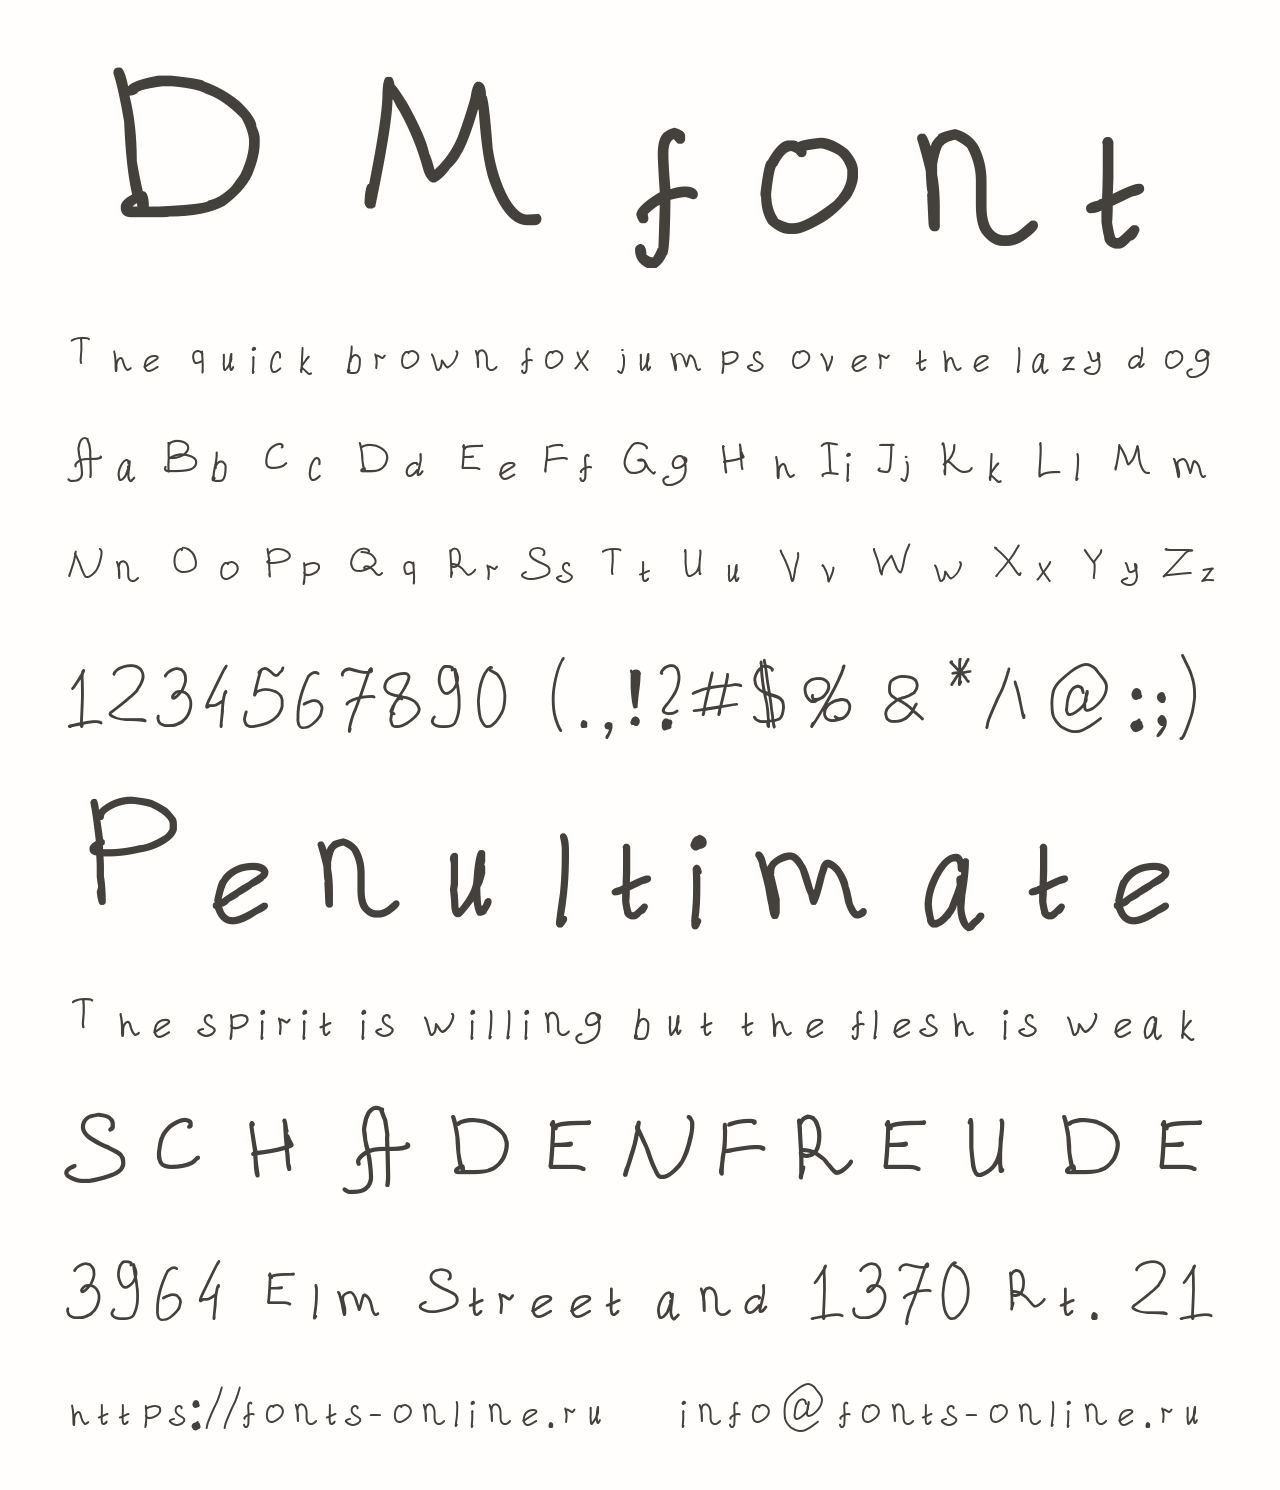 DM font
The quick brown fox jumps over the lazy dog
Aa Bb Cc Dd Ee Ff Gg Hh Ii Jj Kk Ll Mm
Nn Oo Pp Qq Rr Ss Tt Uu Vv Ww Xx Yy Zz
1234567890 (.,!?#$% & */\@:;)
Penultimate
The spirit is willing but the flesh is weak
SCHADENFREUDE
3964 Elm Street and 1370 Rt. 21
https://fonts-online.ru info@fonts-online.ru